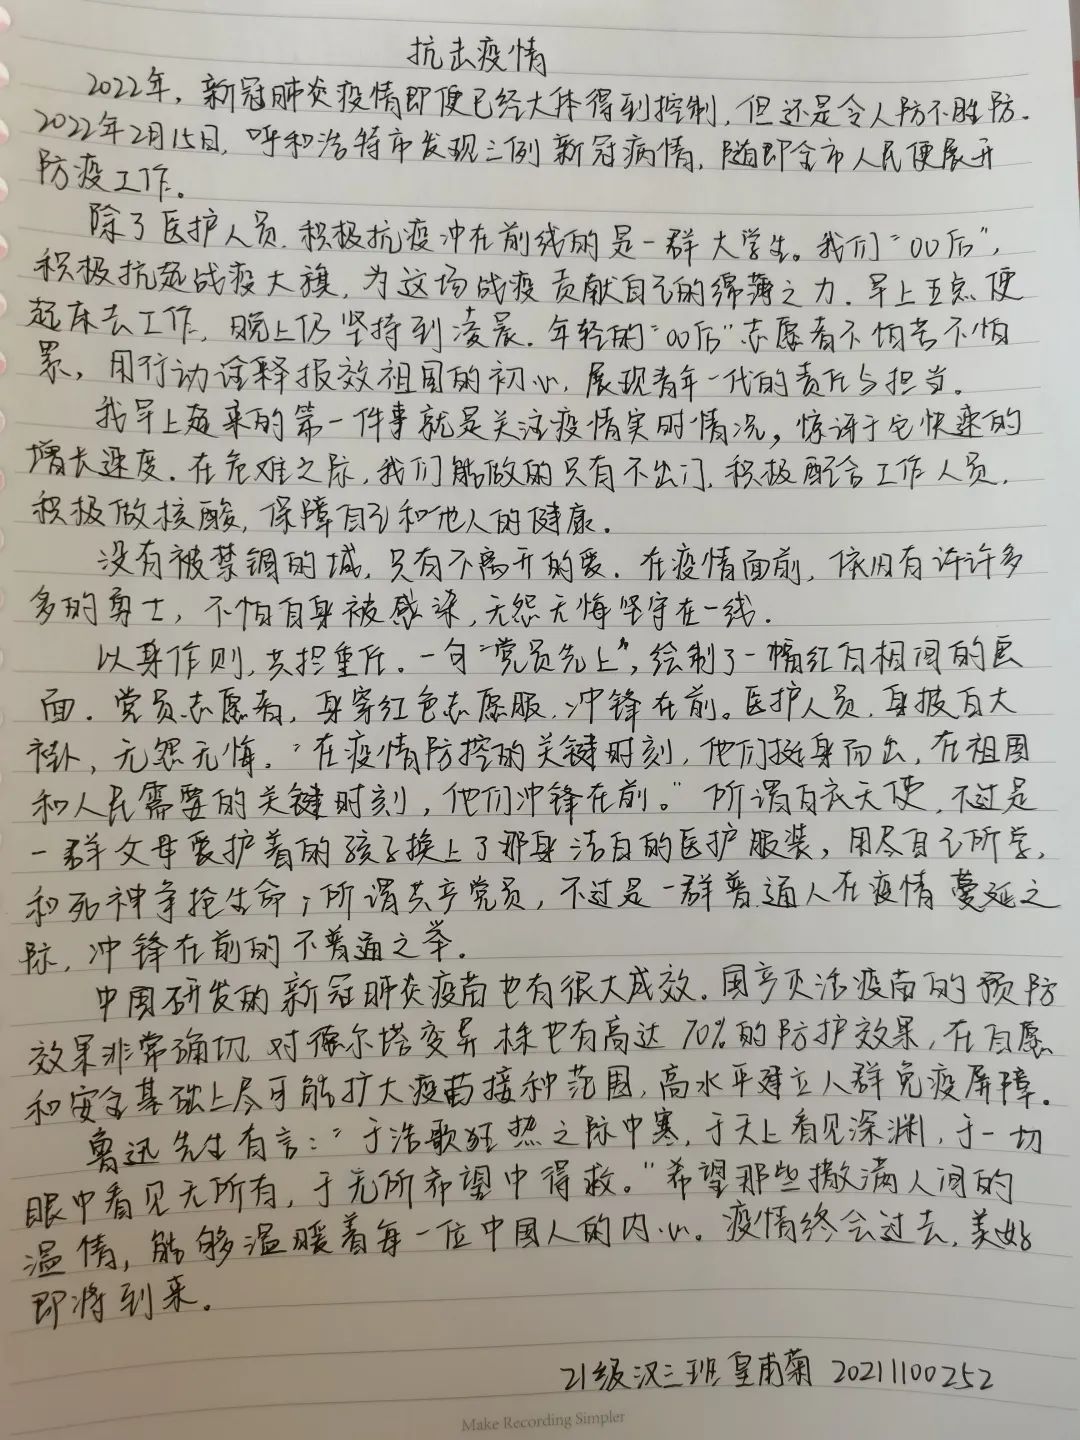 抗击疫情
2022年，新冠肺炎疫情即便已经大体得到控制，但还是令人防不胜防。
2022年2月15日，呼和浩特市发现三例新冠病情，随即全市人民便展开
防疫工作。
除了医护人员，积极抗疫冲在前线的是一群大学生。我们“00后”，
积极抗起战疫大旗，为这场战疫贡献自己的绵薄之力，早上五点便
起床去工作，晚上仍坚持到凌晨。年轻的“00后”志愿者不怕苦不怕
累，用行动诠释报效祖国的初心，展现青年一代的责任与担当。
我早上起来的第一件事就是关注疫情实时情况，惊讶于它快速的
增长速度。在危难之际，我们能做的只有不出门，积极配合工作人员，
积极做核酸，保障自己和他人的健康。
没有被禁锢的城，只有不离开的爱。在疫情面前，依旧有许许多
多的勇士，不怕自身被感染，无怨无悔坚守在一线。
以身作则，共担重任。一句“党员先上”，绘制了一幅红白相间的画
面。党员志愿者，身穿红色志愿服，冲锋在前。医护人员，身披白大
褂，无怨无悔。“在疫情防控的关键时刻，他们挺身而出，在祖国
和人民需要的关键时刻，他们冲锋在前。”所谓白衣天使，不过是
一群父母要护着的孩子换上了那身洁白的医护服装，用尽自己所学，
和死神争抢生命；所谓共产党员，不过是一群普通人在疫情蔓延之
际，冲锋在前的不普通之举。
中国研发的新冠肺炎疫苗也有很大成效。国产灭活疫苗的预防
效果非常确切，对德尔塔变异株也有高达70%的防护效果，在自愿
和安全基础上尽可能扩大疫苗接种范围，高水平建立人群免疫屏障。
鲁迅先生有言：“于浩歌狂热之际中寒，于天上看见深渊，于一切
眼中看见无所有，于无所希望中得救。”希望那些撒满人间的
温情，能够温暖着每一位中国人的内心。疫情终会过去，美好
即将到来。
21级汉三班皇甫菊 20211100252
Make Recording Simpler